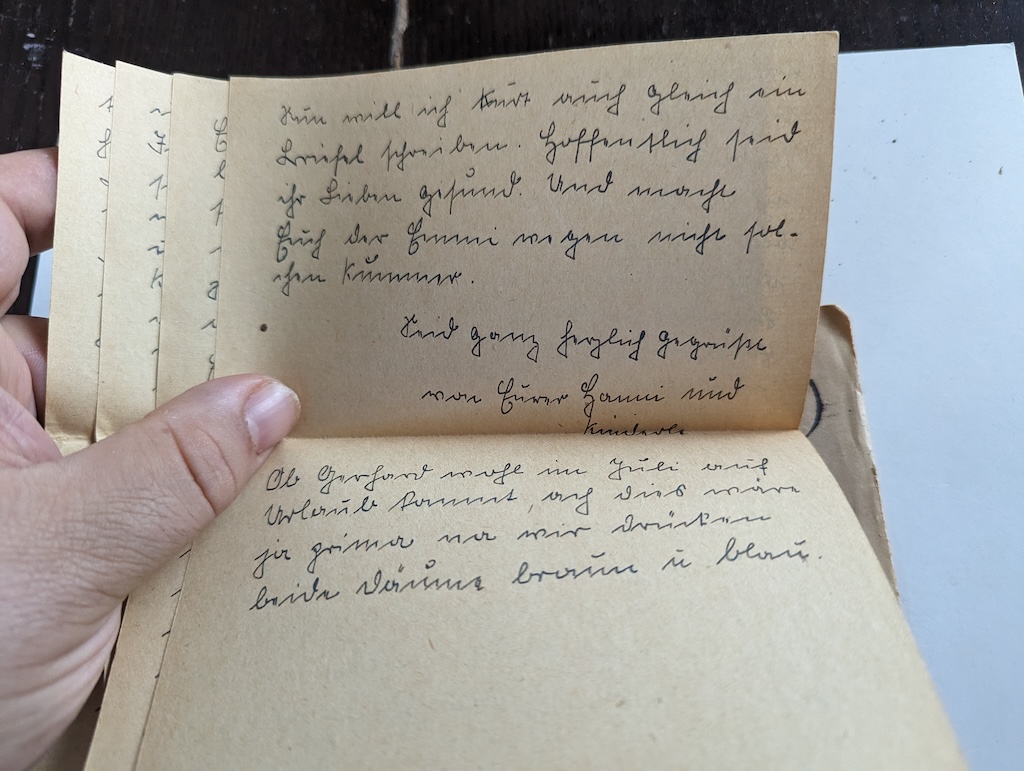 Nun will ich Kurt auch gleich ein
Briefel schreiben. Hoffentlich seid
ihr Lieben gesund. Und macht
Euch der Emmi wegen nicht sol-
chen Kummer.
Seid ganz herzlich gegrüßt
von Eurer Hanni und
Kinderle
Ob Gerhard wohl im Juli auf
Urlaub kommt, ach dies wäre
ja prima na wir drücken
beide Däume braun u blau.